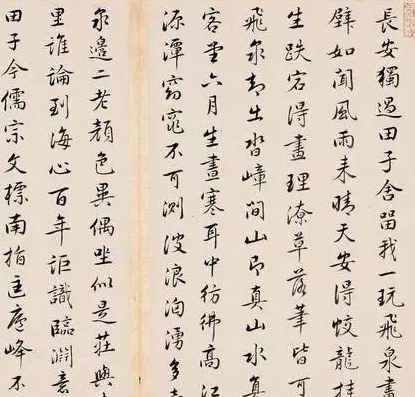 長安獨過田子舍留我一玩飛泉畫
壁如聞風雨来晴天安得蛟龍挂
生跌宕得畫理潦草落筆皆可
飛泉却出沓嶂間山即真山水真
客堂六月生晝寒耳中彷彿高江
源潭窈窕不可測波浪洶湧多
泉邊二老顏色異偶坐似是莊與
里誰論到海心百年詎識臨淵意
田子今儒宗文標南指匡廬峰不